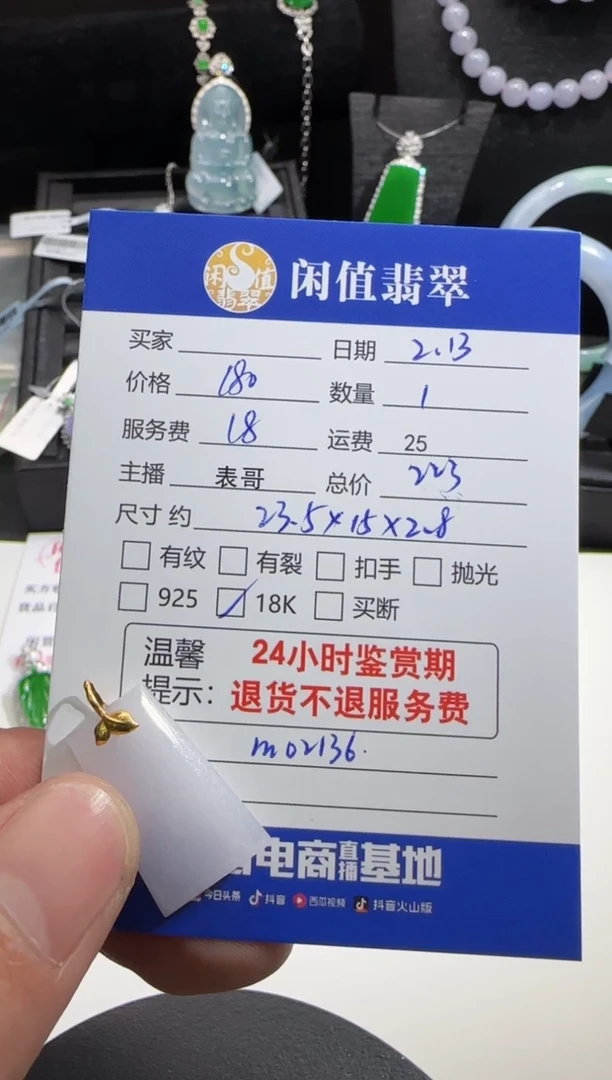 闲值翡翠
闲值翡翠
买家 日期 2.13
价格 180 数量 1
服务费 18 运费 25
主播 表哥 总价 223
尺寸 约 23.5×15×2.8
有纹 有裂 扣手 抛光
925 18K 买断
温馨提示: 24小时鉴赏期
退货不退服务费
m02136.
电商直播基地
今日头条 抖音 西瓜视频 抖音火山版